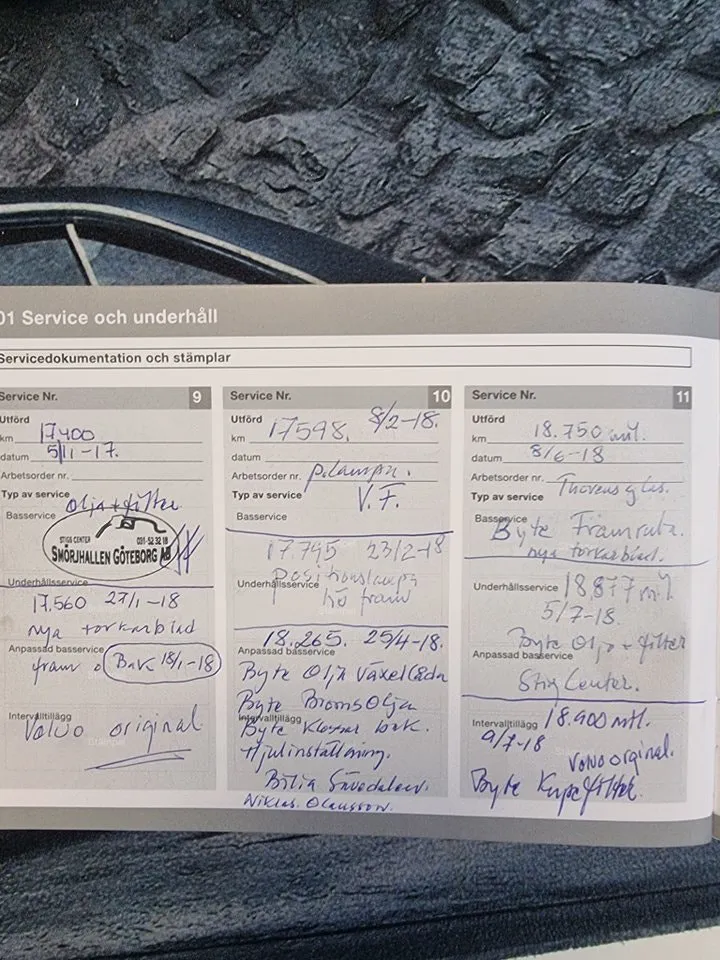 01 Service och underhåll
Servicedokumentation och stämplar
Service Nr. 9
Utförd
km 17.400
datum 5/11-17.
Arbetsorder nr.
Typ av service
Olja + filter
Basservice
STIGS CENTER 031-52 32 18
SMÖRJHALLEN GÖTEBORG AB
Underhållsservice
17.560 27/1-18
nya torkarblad
Anpassad basservice
fram o Bak 18/1-18
Intervalltillägg
Volvo original
Service Nr. 10
Utförd
km 17598. 8/2-18.
datum
Arbetsorder nr. P.lampa.
Typ av service V.F.
Basservice
17.795 23/2-18
Underhållsservice
positionslampa
hö fram
18.265. 25/4-18.
Anpassad basservice
Byte Olja Växellåda
Byte BromsOlja
Intervalltillägg
Byte Klossar bak.
Hjulinställning.
Bilia Sävedalen.
Niklas. Olausson.
Service Nr. 11
Utförd
km 18.750 mil.
datum 8/6-18
Arbetsorder nr.
Typ av service
Basservice
Byte Framruta.
nya torkarblad.
Underhållsservice 18,877 mil
5/7-18.
Byte Olja + filter
Anpassad basservice
Stig Center.
Intervalltillägg 18.900 mil.
9/7-18
Volvo orginal.
Byte Kupefilter.